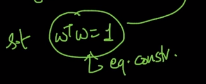 st wᵀw = 1
eq. constr.